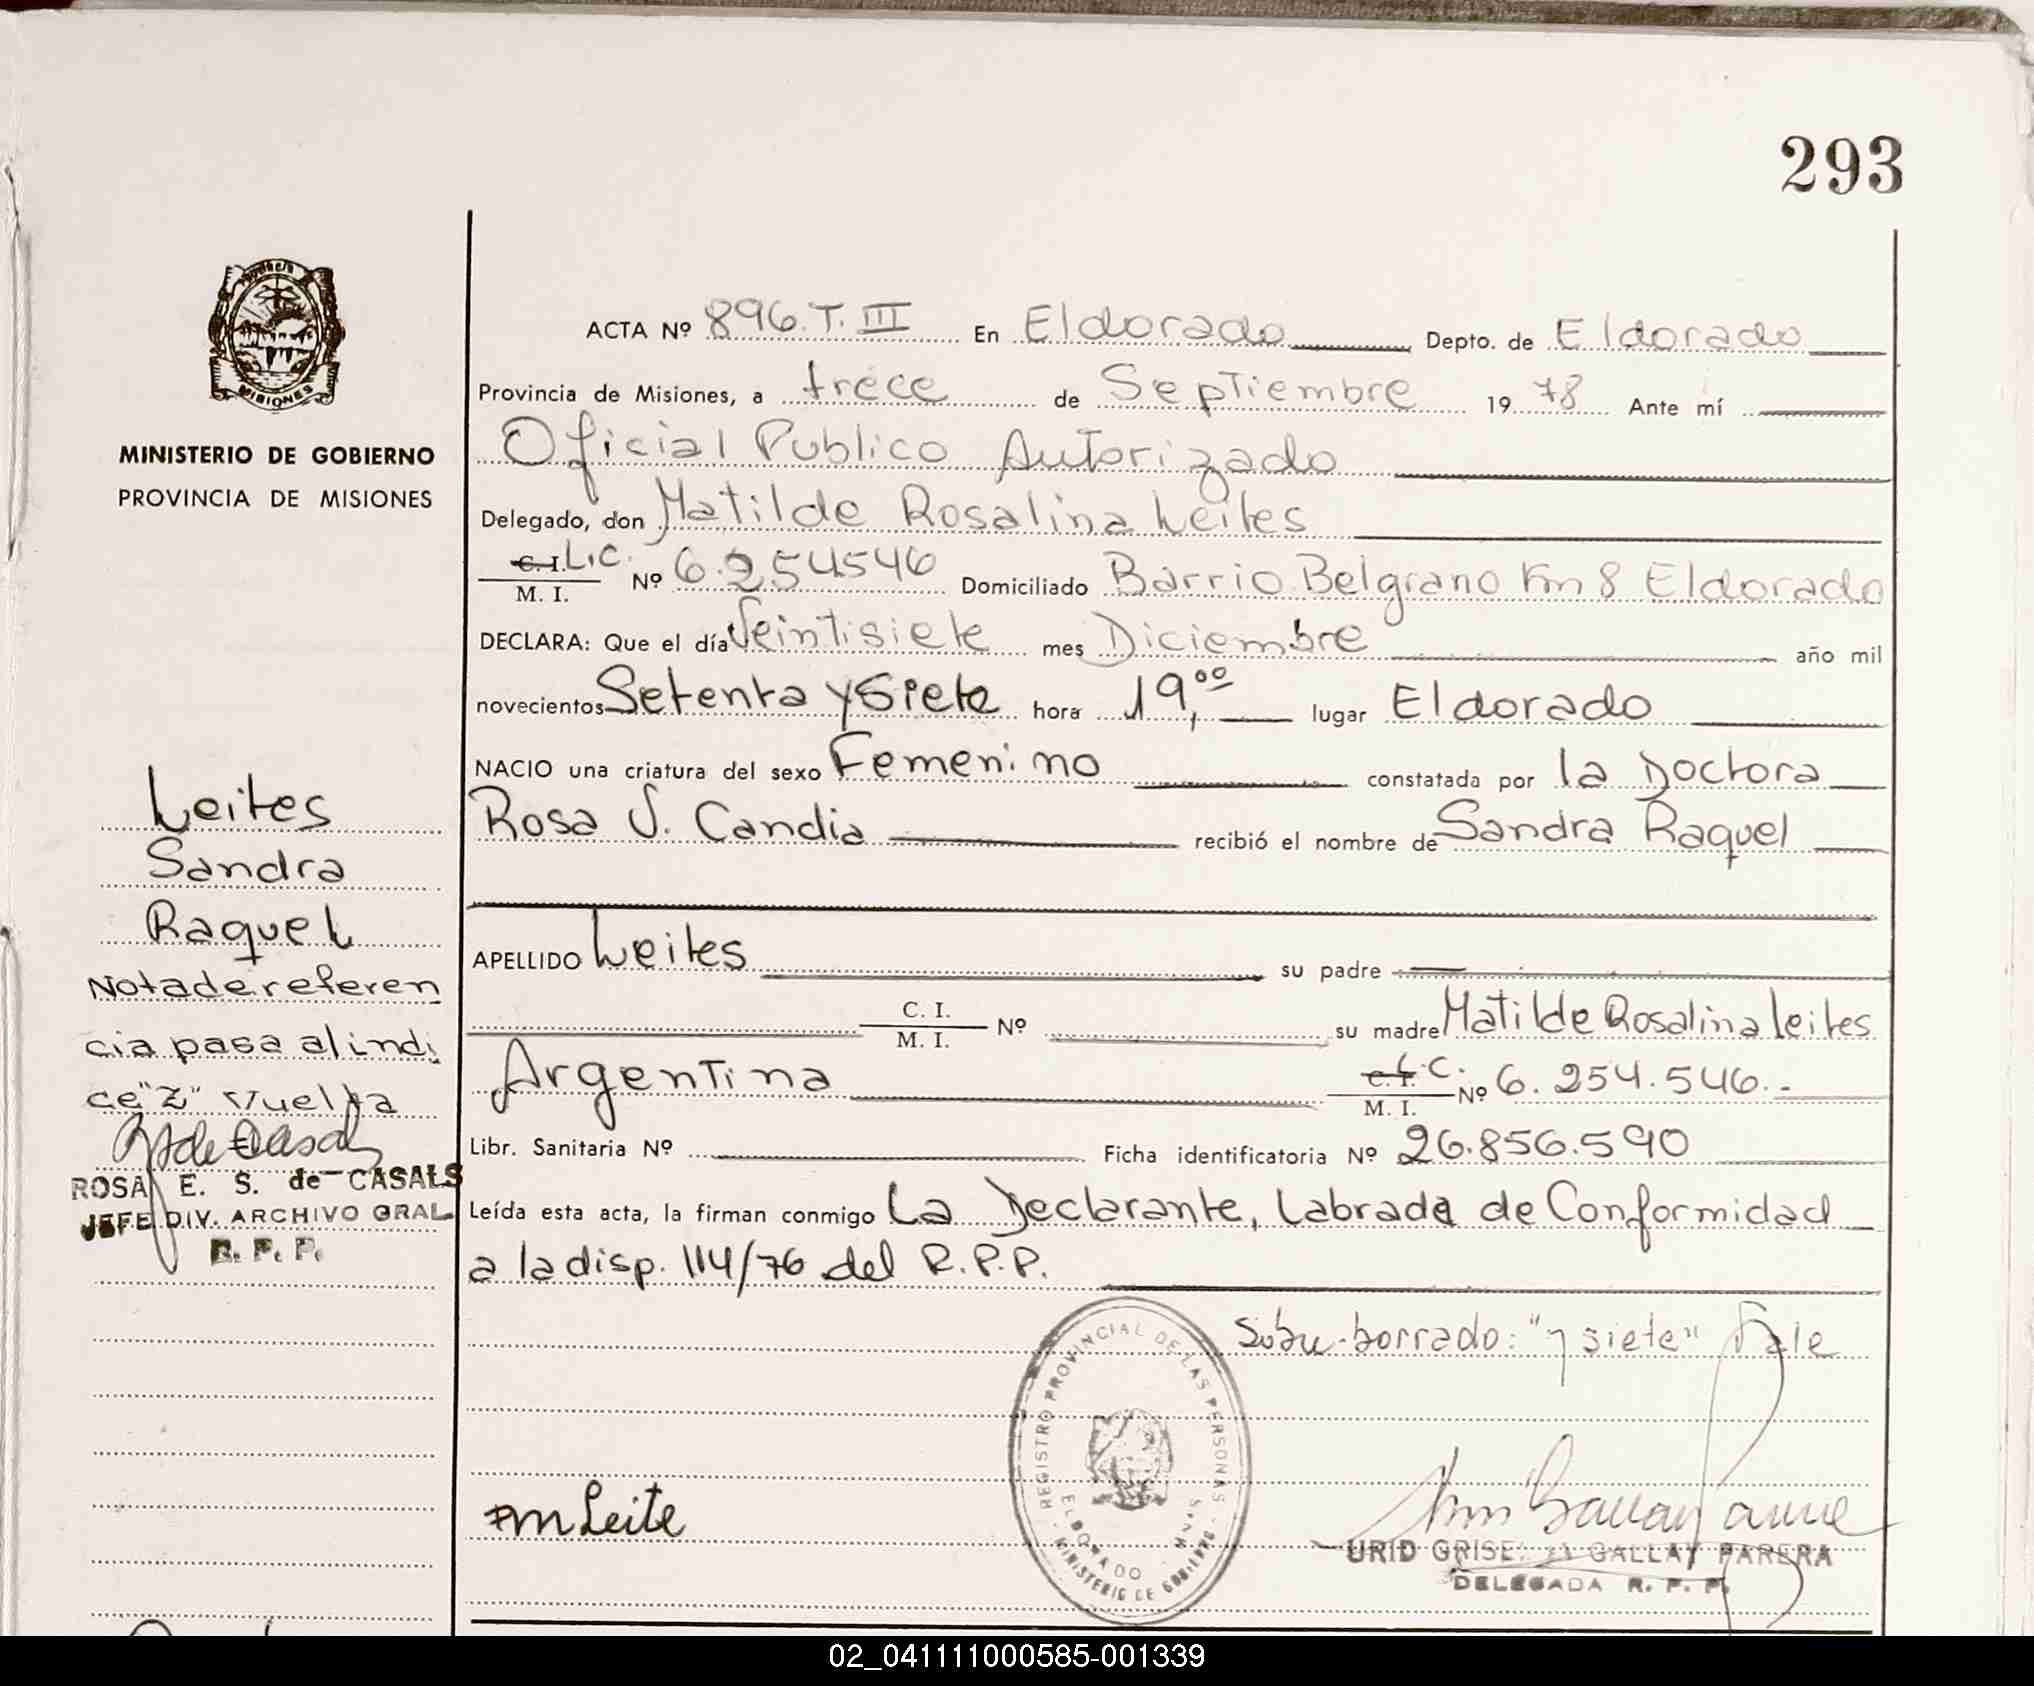 293
MISIONES
MINISTERIO DE GOBIERNO
PROVINCIA DE MISIONES
ACTA Nº 896.T.III En Eldorado Depto. de Eldorado
Provincia de Misiones, a trece de Septiembre 1978 Ante mí
Oficial Publico Autorizado
Delegado, don Matilde Rosalina Leites
C. I. L.C.
M. I. Nº 6.254546 Domiciliado Barrio Belgrano Km 8 Eldorado
DECLARA: Que el día Veintisiete mes Diciembre año mil
novecientos Setenta y Siete hora 19,00 lugar Eldorado
NACIO una criatura del sexo Femenino constatada por la Doctora
Rosa V. Candia recibió el nombre de Sandra Raquel
APELLIDO Leites su padre
C. I.
M. I. Nº su madre Matilde Rosalina Leites
Argentina C. I. L.C.
M. I. Nº 6.254.546.-
Libr. Sanitaria Nº Ficha identificatoria Nº 26.856.590
Leída esta acta, la firman conmigo La Declarante, Labrada de Conformidad
a la disp. 114/76 del R.P.P.
Sobre-borrado: "y siete" Vale
Leites
Sandra
Raquel
Nota de referen
cia pasa al indi
ce "Z" vuelta
R de Casals
ROSA E. S. de CASALS
JEFE DIV. ARCHIVO GRAL
R. P. P.
REGISTRO PROVINCIAL DE LAS PERSONAS
ELDORADO - MNES
MINISTERIO DE GOBIERNO
M Leite
URID GRISELDA GALLAY PARERA
DELEGADA R. P. P.
02_041111000585-001339